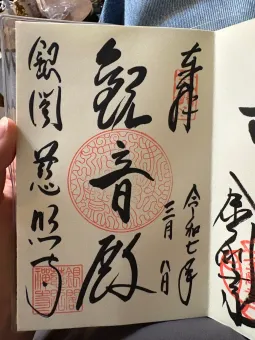 奉拝
令和七年
三月八日
觀音殿
銀閣慈照寺